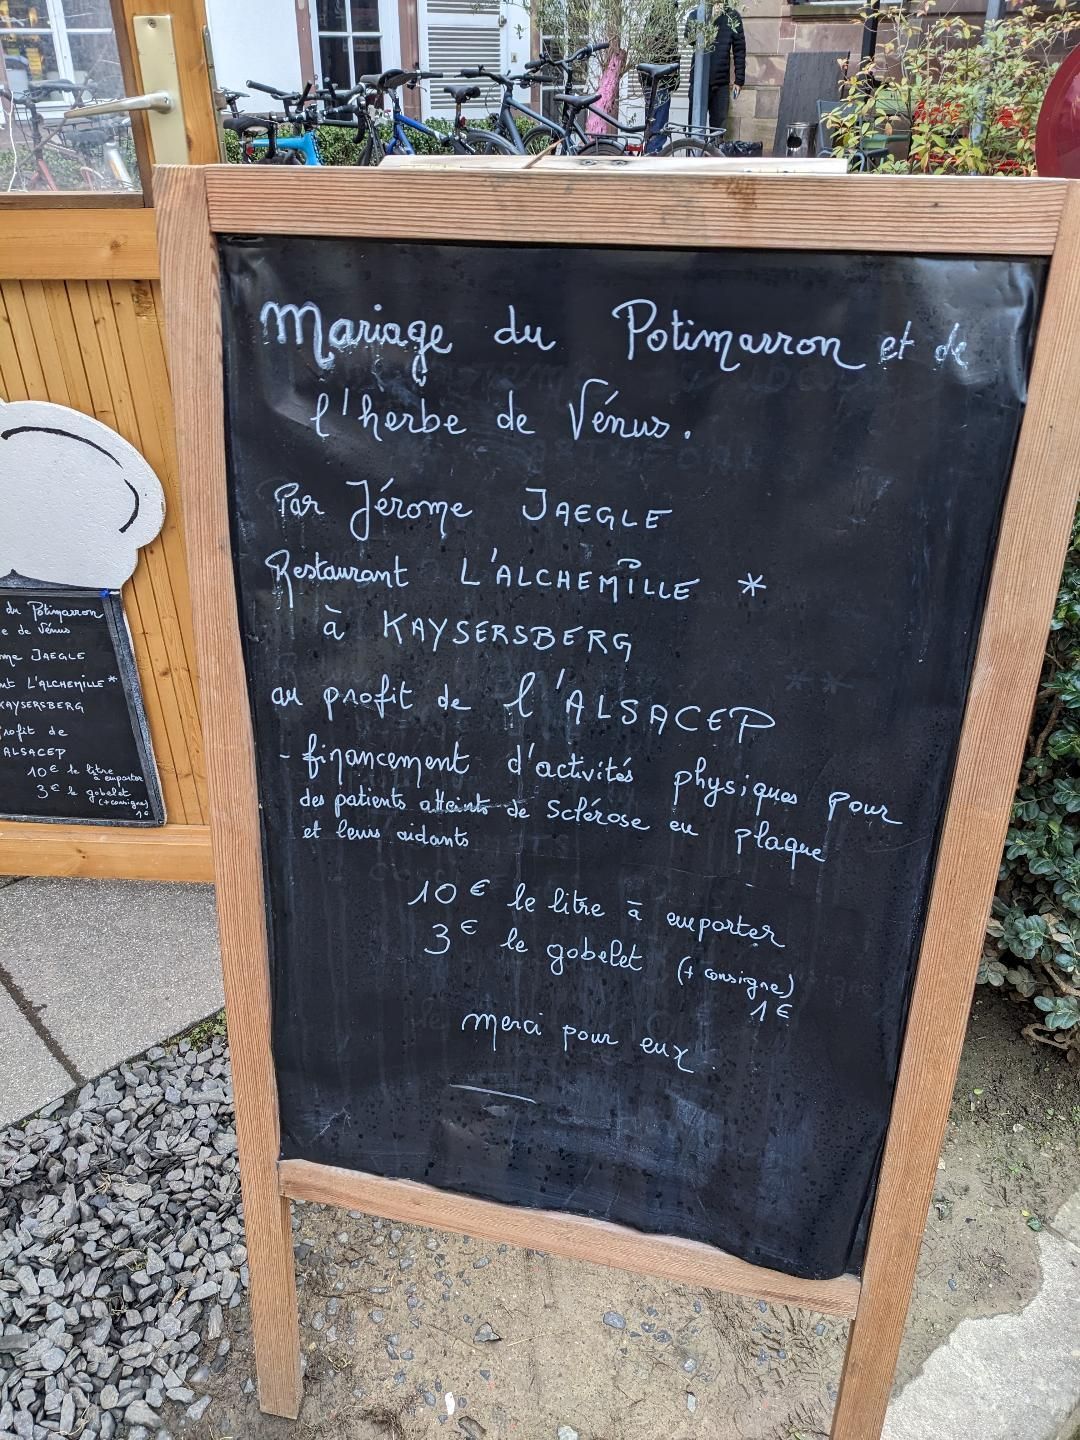 Mariage du Potimarron et de
l'herbe de Vénus.
Par Jérome JAEGLE
Restaurant L'ALCHEMILLE *
à KAYSERSBERG
au profit de l'ALSACEP
- financement d'activités physiques pour
des patients atteints de Sclérose en plaque
et leurs aidants
10€ le litre à emporter
3€ le gobelet (+ consigne)
1€
Merci pour eux.
du Potimarron
de Vénus
JAEGLE
L'ALCHEMILLE *
KAYSERSBERG
profit de
ALSACEP
10€ le litre
à emporter
3€ le gobelet
(+ consigne)
1€